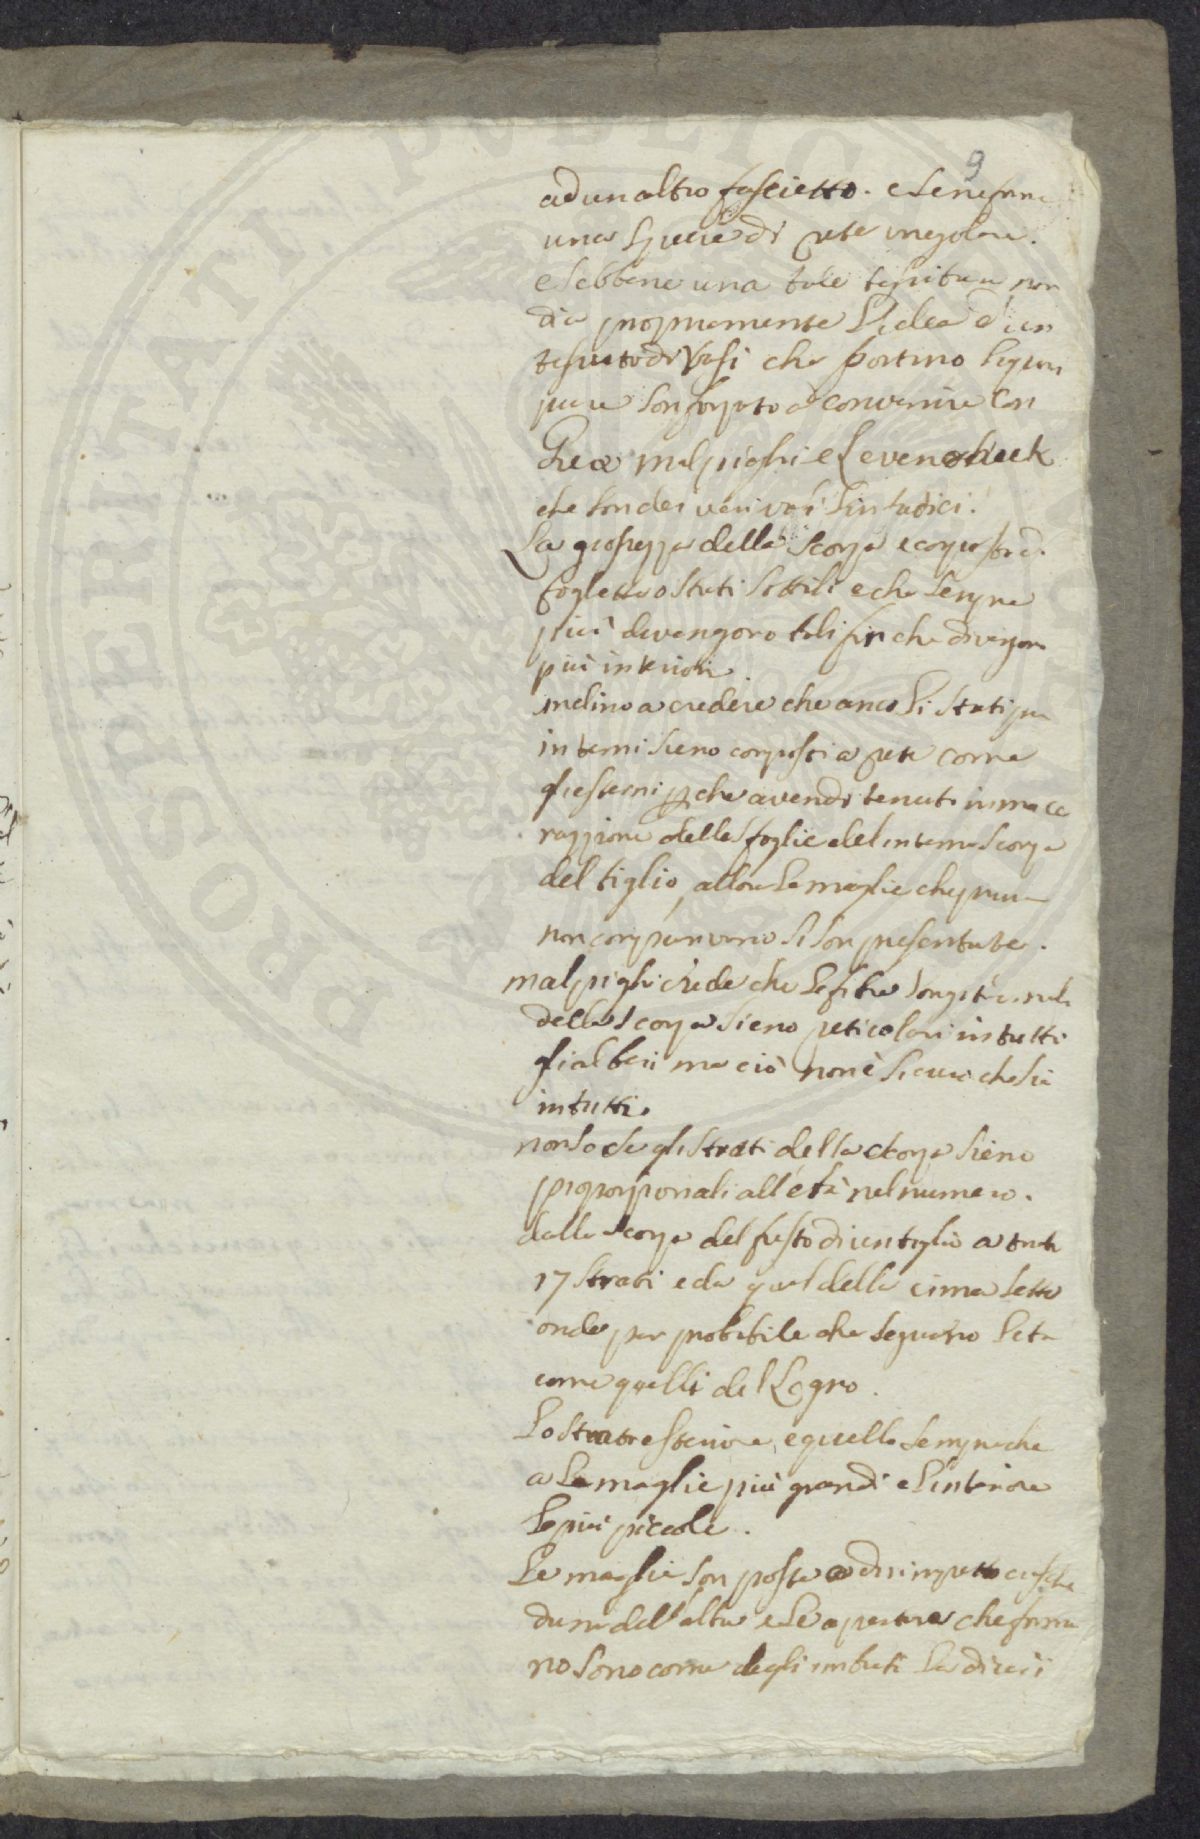 9
ad un altro fascietto. e se ne forma
una specie di rete iregolare.
e sebbene una tale tessitura non
dia propriamente l'idea d'un
tessuto di vasi che portino liquori
pure son forzato a convenire con
Grew malpighi e Levenoheek
che son dei veri vasi linfadici.
La grossezza della scorza e composta d.
foglette o strati sottili e che sempre
più devengoro tali finche divengon
più interiori
inclino a credere che anco li strati piu
interni sieno composti a rete come
gl'esterni p che avendo tenuti in mace
razzione delle foglie del interna scorza
del tiglio, allora le maglie che prima
non comparivano si son presentate.
malpighi crede che le fibre longitudinali
della scorza sieno reticolari in tutti
gl'alberi ma ciò non è sicuro che sia
in tutti.
non so se gli strati della scorza sieno
proporzionali all'età nel numero.
dalla scorza del fusto di un tiglio a tratti
17 strati e da quel della cima sette
onde par probabile che seguano l'eta
come quelli del Legno.
Lo strato esteriore e quello sempre che
a le maglie più grandi e l'interiore
le più piccole.
Le maglie son poste a dirimpetto ciasche
duna dell'altra e le aperture che forma
no sono come degli imbuti la di cui
PVBLICA